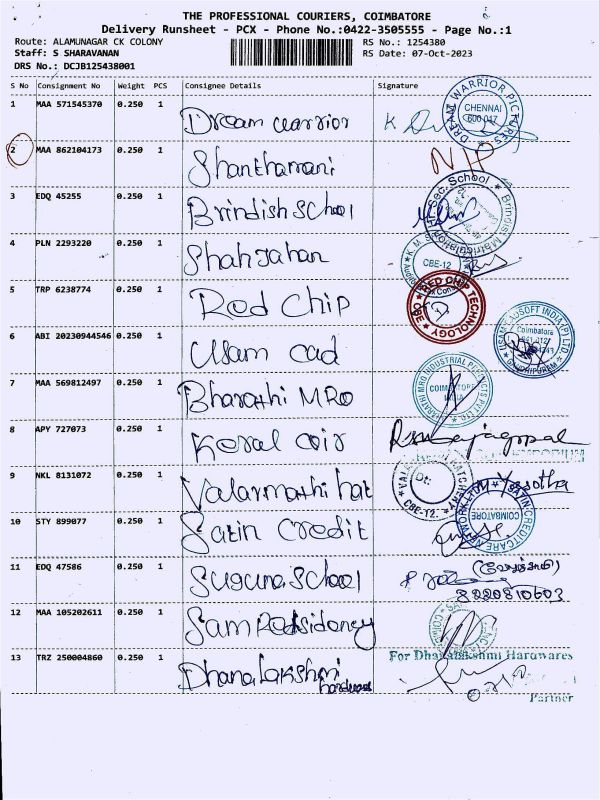 THE PROFESSIONAL COURIERS, COIMBATORE
Delivery Runsheet - PCX - Phone No.:0422-3505555 - Page No.:1
Route: ALAMUNAGAR CK COLONY RS No.: 1254380
Staff: S SHARAVANAN RS Date: 07-Oct-2023
DRS No.: DCJB125438001
S No Consignment No Weight PCS Consignee Details Signature
1 MAA 571545370 0.250 1 Dream warrior
DREAM WARRIOR PICTURES CHENNAI 600 017
2 MAA 862104173 0.250 1 Shanthamani
3 EDQ 45255 0.250 1 Brindish School
Sec. School Matriculation
4 PLN 2293220 0.250 1 Shah Jahan
CBE-12
5 TRP 6238774 0.250 1 Red Chip
RED CHIP TECHNOLOGY CBE
6 ABI 20230944546 0.250 1 Usam cad
CADSOFT INDIA (P) LTD Coimbatore
7 MAA 569812497 0.250 1 Bharathi MRO
BHARATHI MRO INDUSTRIAL PRODUCTS PVT LTD
8 APY 727073 0.250 1 Keral coir
9 NKL 8131072 0.250 1 Valarmathi hat Yasotha
CBE-12.
10 STY 899077 0.250 1 Satin Credit
SATIN CREDITCARE NETWORK LTD COIMBATORE
11 EDQ 47586 0.250 1 Suguna School
8220810603
12 MAA 105202611 0.250 1 Sam Residency
13 TRZ 250004860 0.250 1 Dhana lakshmi hardwares
For Dhanalakshmi Hardwares
Partner